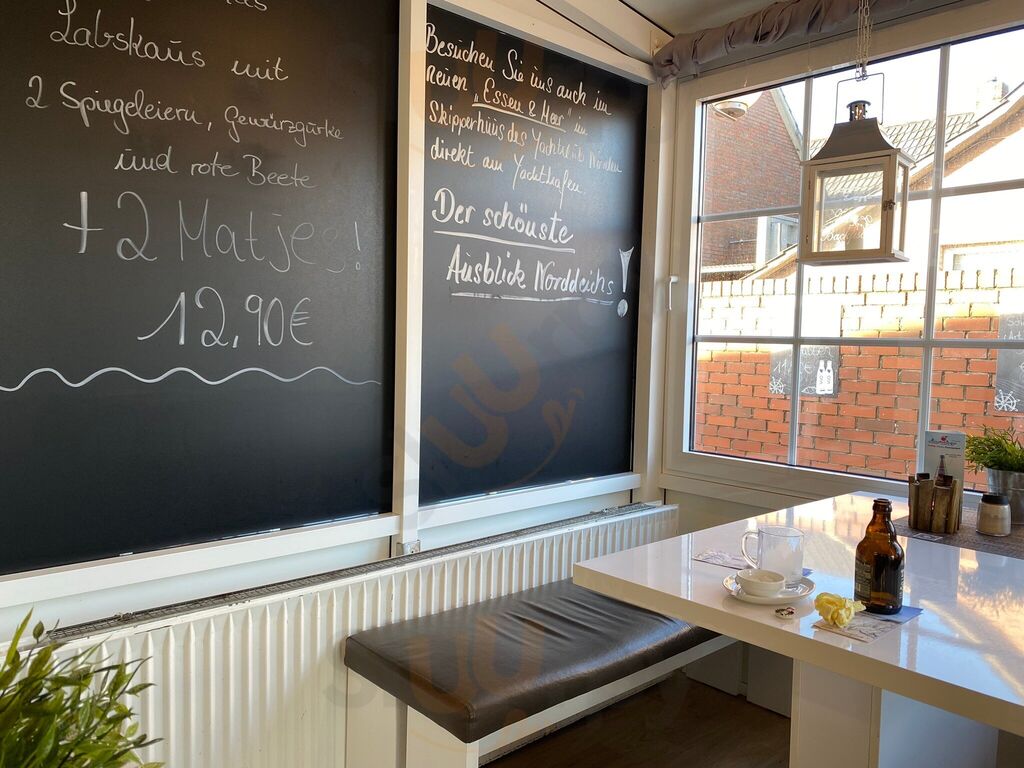 Labskaus mit
2 Spiegeleiern, Gewürzgurke
und rote Beete
+ 2 Matjes!
12,90€
Besuchen Sie uns auch im
neuen "Essen & Meer" im
Skipperhuus des Yachtclub Norden
direkt am Yachthafen.
Der schönste
Ausblick Norddeichs!